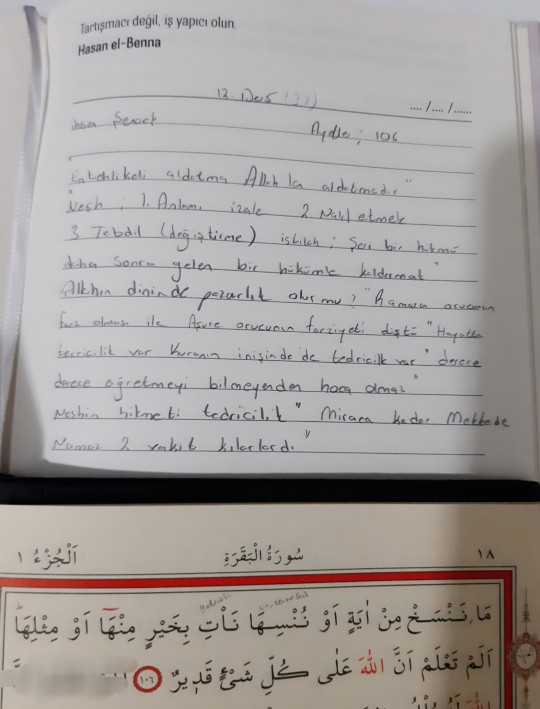 Tartışmacı değil, iş yapıcı olun.
Hasan el-Benna
12. Ders (31) .... /.... /......
ihsan Şenocak Aydle; 106
En tehlikeli aldatma Allah'la aldatmadır"
Nesh ; 1. Anlamı izale 2 Nakl etmek
3 Tebdil (değiştirme) ıstılah ; Şeri bir hükmü
daha sonra gelen bir hükümle kaldırmak"
Allahın dininde pazarlık olur mu? " Ramazan orucunun
farz olması ile Aşure orucunun farziyeti düştü " Hayatta
tedricilik var Kuranın inişinde de tedricilik var " derece
derece öğretmeyi bilmeyenden hoca olmaz"
Neshin hikmeti tedricilik " Miraca kadar Mekkede
Namaz 2 vakit kılarlardı "
١٨ سُورَةُ الْبَقَرَةِ اَلْجُزْءُ ١
مَا نَنْسَخْ مِنْ اٰيَةٍ اَوْ نُنْسِهَا نَاْتِ بِخَيْرٍ مِنْهَٓا اَوْ مِثْلِهَاۜ
اَلَمْ تَعْلَمْ اَنَّ اللّٰهَ عَلٰى كُلِّ شَيْءٍ قَد۪يرٌ ﴿١٠٦﴾